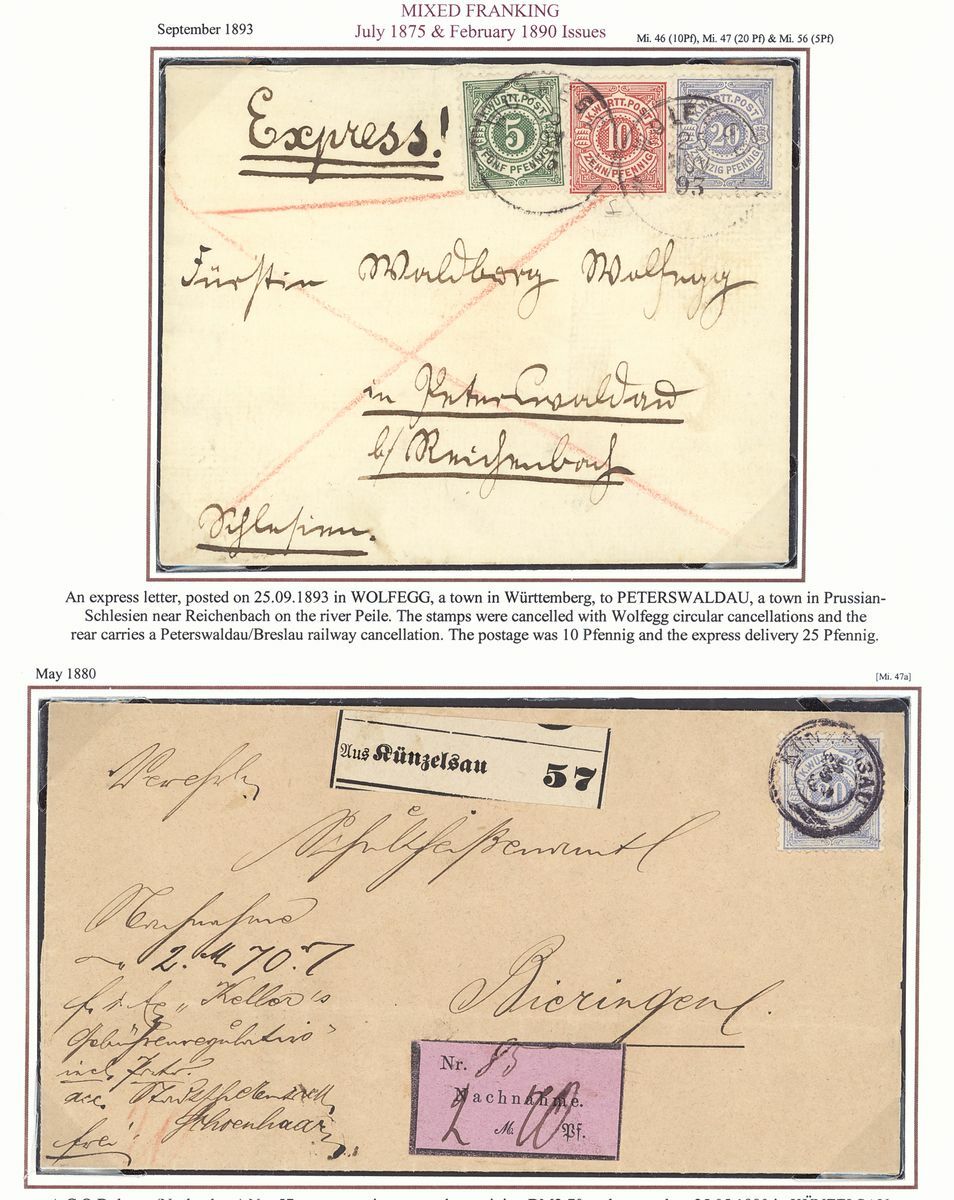 MIXED FRANKING
September 1893
July 1875 & February 1890 Issues
Mi. 46 (10Pf), Mi. 47 (20 Pf) & Mi. 56 (5Pf)
Express!
K.WÜRTT.POST 5 FÜNF PFENNIG
K.WÜRTT.POST 10 ZEHN PFENNIG
WÜRTT.POST 20 PFENNIG
25
93
Fürstin Waldburg Wolfegg
in Peterswaldau
b/Reichenbach
Schlesien.
An express letter, posted on 25.09.1893 in WOLFEGG, a town in Württemberg, to PETERSWALDAU, a town in Prussian-
Schlesien near Reichenbach on the river Peile. The stamps were cancelled with Wolfegg circular cancellations and the
rear carries a Peterswaldau/Breslau railway cancellation. The postage was 10 Pfennig and the express delivery 25 Pfennig.
May 1880
[Mi. 47a]
Aus Künzelsau 57
20
Verehrl.
Schultheißenamt
Nachnahme
2. M. 70.
Keller's
Gebührenregulativ"
incl. Porto.
Bieringen.
frei!
Nr. 83
Nachnahme.
2 M. 70 Pf.